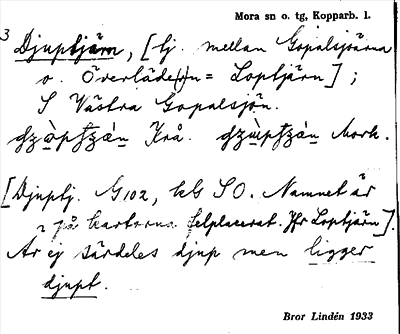 Mora sn o. tg, Kopparb. l.
3
Djuptjärn, [tj. mellan Gopalsjöarna
o. Överläde(j)n = Loptjärn];
S Västra Gopalsjön.
Krå. Mork.
[Djuptj. G102, bG SO. Namnet är
på kartorna felplacerat. Jfr Loptjärn].
Är ej särdeles djup men ligger
djupt.
Bror Lindén 1933